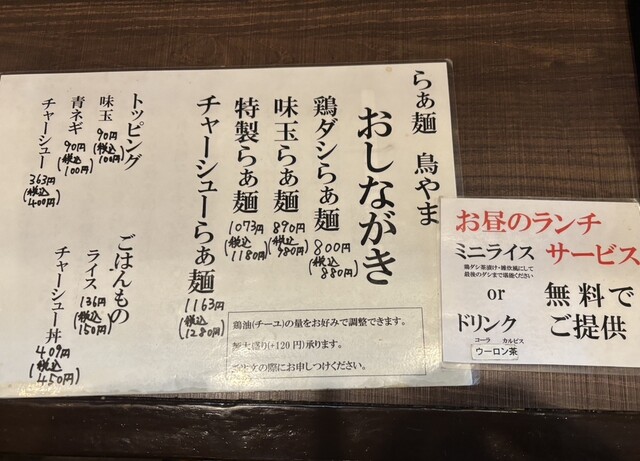 らぁ麺 鳥やま
おしながき
鶏ダシらぁ麺 800円
(税込880円)
味玉らぁ麺 890円
(税込980円)
特製らぁ麺 1073円
(税込1180円)
チャーシューらぁ麺 1163円
(税込1280円)
トッピング
味玉 90円
(税込100円)
青ネギ 90円
(税込100円)
チャーシュー 363円
(税込400円)
ごはんもの
ライス 136円
(税込150円)
チャーシュー丼 409円
(税込450円)
鶏油(チーユ)の量をお好みで調整できます。
麺大盛り(+120円)承ります。
ご注文の際にお申しつけください。
お昼のランチ
サービス
ミニライス
鶏ダシ茶漬け・雑炊風にして
最後のダシまで堪能ください
or
ドリンク
コーラ カルピス
ウーロン茶
無料で
ご提供